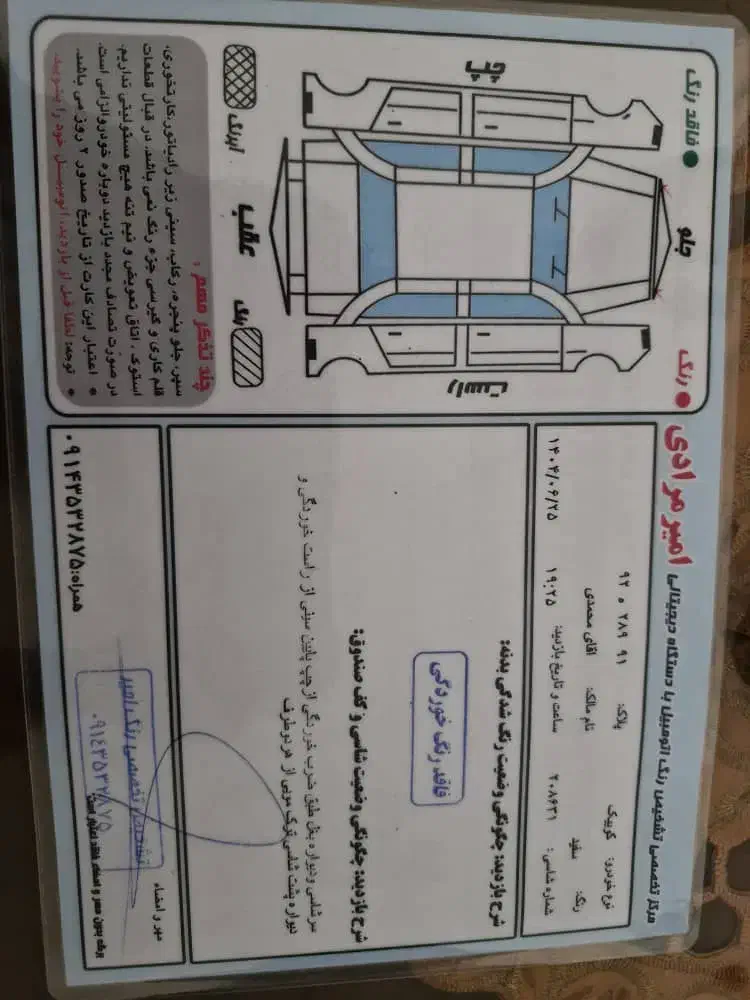 مرکز تخصصی تشخیص رنگ اتومبیل با دستگاه دیجیتالی امیر مرادی
نوع خودرو: کوییک
پلاک: ۹۱ ۲۸۹ ه ۹۲
رنگ: سفید
نام مالک: اقای محمدی
شماره شاسی: ۲۰۸۶۳۱
ساعت و تاریخ بازدید: ۱۹:۲۵ ۱۴۰۴/۰۶/۲۵
شرح بازدید: چگونگی وضعیت رنگ شدگی بدنه:
فاقد رنگ خوردگی
شرح بازدید: چگونگی وضعیت شاسی و کف صندوق:
سرشاسی و دیواره بغل طبق ضرب خوردگی از چپ پایین سینی از راست خوردگی و
دیواره پشت شاسی ترک مویی از هر دو طرف
مهر و امضاء
تشخیص تخصصی رنگ امیر
۰۹۱۴۳۵۳۲۸۷۵
برگه بدون مهر و امضاء فاقد اعتبار است
همراه: ۰۹۱۴۳۵۳۲۸۷۵
فاقد رنگ
رنگ
جلو
چپ
راست
عقب
آبرنگ
رنگ
چند تذکر مهم:
سپر، جلو پنجره، رکاب، سینی زیر رادیاتور، کارتخوری،
قلم کاری و گیرسی جزء رنگ نمی باشد. در قبال قطعات
استوک، اتاق تعویض و نیم تنه هیچ مسئولیتی نداریم.
در صورت تصادف مجدد بازدید دوباره خودرو الزامی است.
* اعتبار این کارت از تاریخ صدور ۲ روز می باشد.
* توجه: لطفا قبل از بازدید، اتومبیل خود را بشویید.